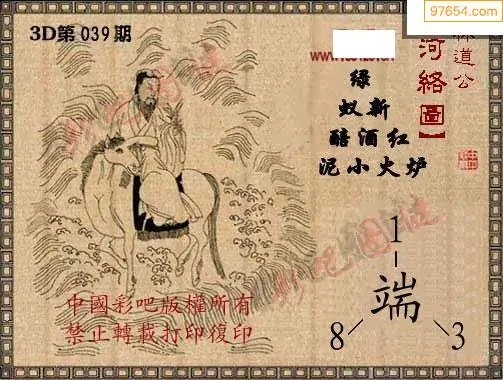 97654.com
3D第039期
林道公
河络圖】
绿
蚁新
醅酒红
泥小火炉
1
端
8
3
彩吧圖谜
彩吧圖谜
中國彩吧版權所有
禁止轉載打印復印